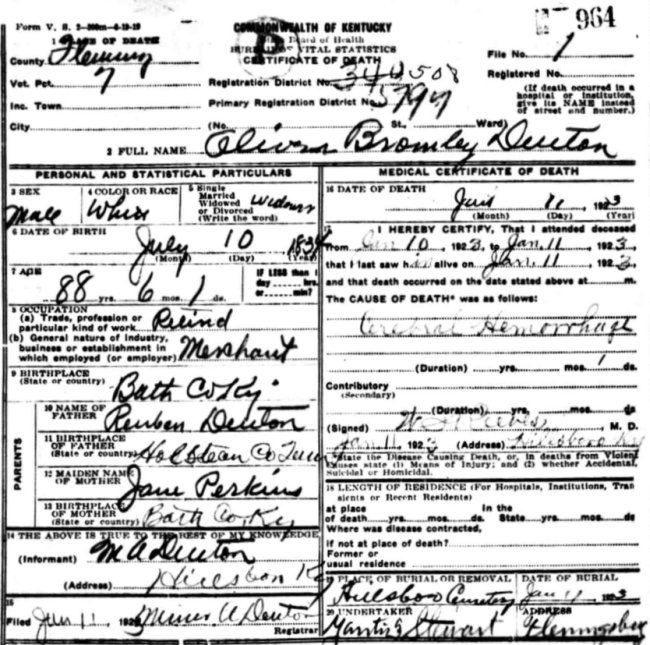 Form V. S. 2-200m-6-19-19
COMMONWEALTH OF KENTUCKY
State Board of Health
BUREAU OF VITAL STATISTICS
CERTIFICATE OF DEATH
964
1 PLACE OF DEATH
County Fleming
Vot. Pct. 7
Inc. Town
City
Registration District No.
Primary Registration District No.
(No. St., Ward)
File No. 1
Registered No.
(If death occurred in a
hospital or institution,
give its NAME instead
of street and number.)
2 FULL NAME Bromley Denton
PERSONAL AND STATISTICAL PARTICULARS
3 SEX
Male
4 COLOR OR RACE
White
5 Single
Married
Widowed
or Divorced
(Write the word)
6 DATE OF BIRTH
July 10
(Month) (Day) (Year)
7 AGE
88 yrs. 6 mos. 1 ds.
IF LESS than 1
day hrs.
or min?
8 OCCUPATION
(a) Trade, profession or
particular kind of work
(b) General nature of industry,
business or establishment in
which employed (or employer) Merchant
9 BIRTHPLACE
(State or country)
Bath Co Ky
PARENTS
10 NAME OF
FATHER
Reuben Denton
11 BIRTHPLACE
OF FATHER
(State or country)
12 MAIDEN NAME
OF MOTHER
Jane Perkins
13 BIRTHPLACE
OF MOTHER
(State or country)
Bath Co Ky
14 THE ABOVE IS TRUE TO THE BEST OF MY KNOWLEDGE
(Informant) M A Denton
(Address)
15
Filed Jan 11 192 Denton
Registrar
MEDICAL CERTIFICATE OF DEATH
16 DATE OF DEATH
11 1923
(Month) (Day) (Year)
I HEREBY CERTIFY, That I attended deceased
from Jan 10 1923, to Jan. 11 1923
that I last saw him alive on Jan. 11 1923
and that death occurred on the date stated above at m.
The CAUSE OF DEATH* was as follows:
Cerebral Hemorrhage
(Duration) yrs. mos. 1 ds
Contributory
(Secondary)
(Duration) yrs. mos. ds
(Signed) M. D.
Jan 11 1923 (Address) Hillsboro Ky
*State the Disease Causing Death, or, in deaths from Violent
Causes state (1) Means of Injury; and (2) whether Accidental,
Suicidal or Homicidal.
18 LENGTH OF RESIDENCE (For Hospitals, Institutions, Tran
sients or Recent Residents)
at place In the
of death yrs. mos. ds State yrs. mos. ds
Where was disease contracted,
if not at place of death?
Former or
usual residence
19 PLACE OF BURIAL OR REMOVAL
Hillsboro Cemetery
DATE OF BURIAL
1923
20 UNDERTAKER
Stewart
ADDRESS
Flemingsburg